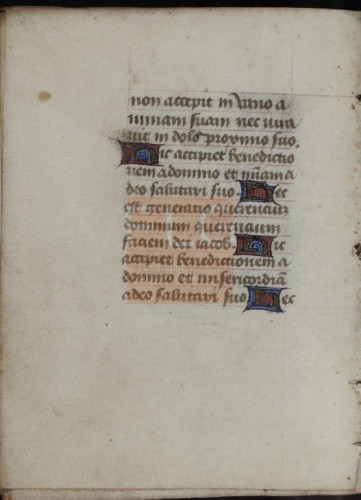 non accepit in vano a
nimam suam nec iura
vit in dolo proximo suo.
Hic accipiet benedictio
nem a domino et miam a
deo salutari suo. Hec
est generatio querencium
dominum querencium
faciem dei iacob. Hic
accipiet benedictionem a
domino et misericordiã
a deo salutari suo Hec